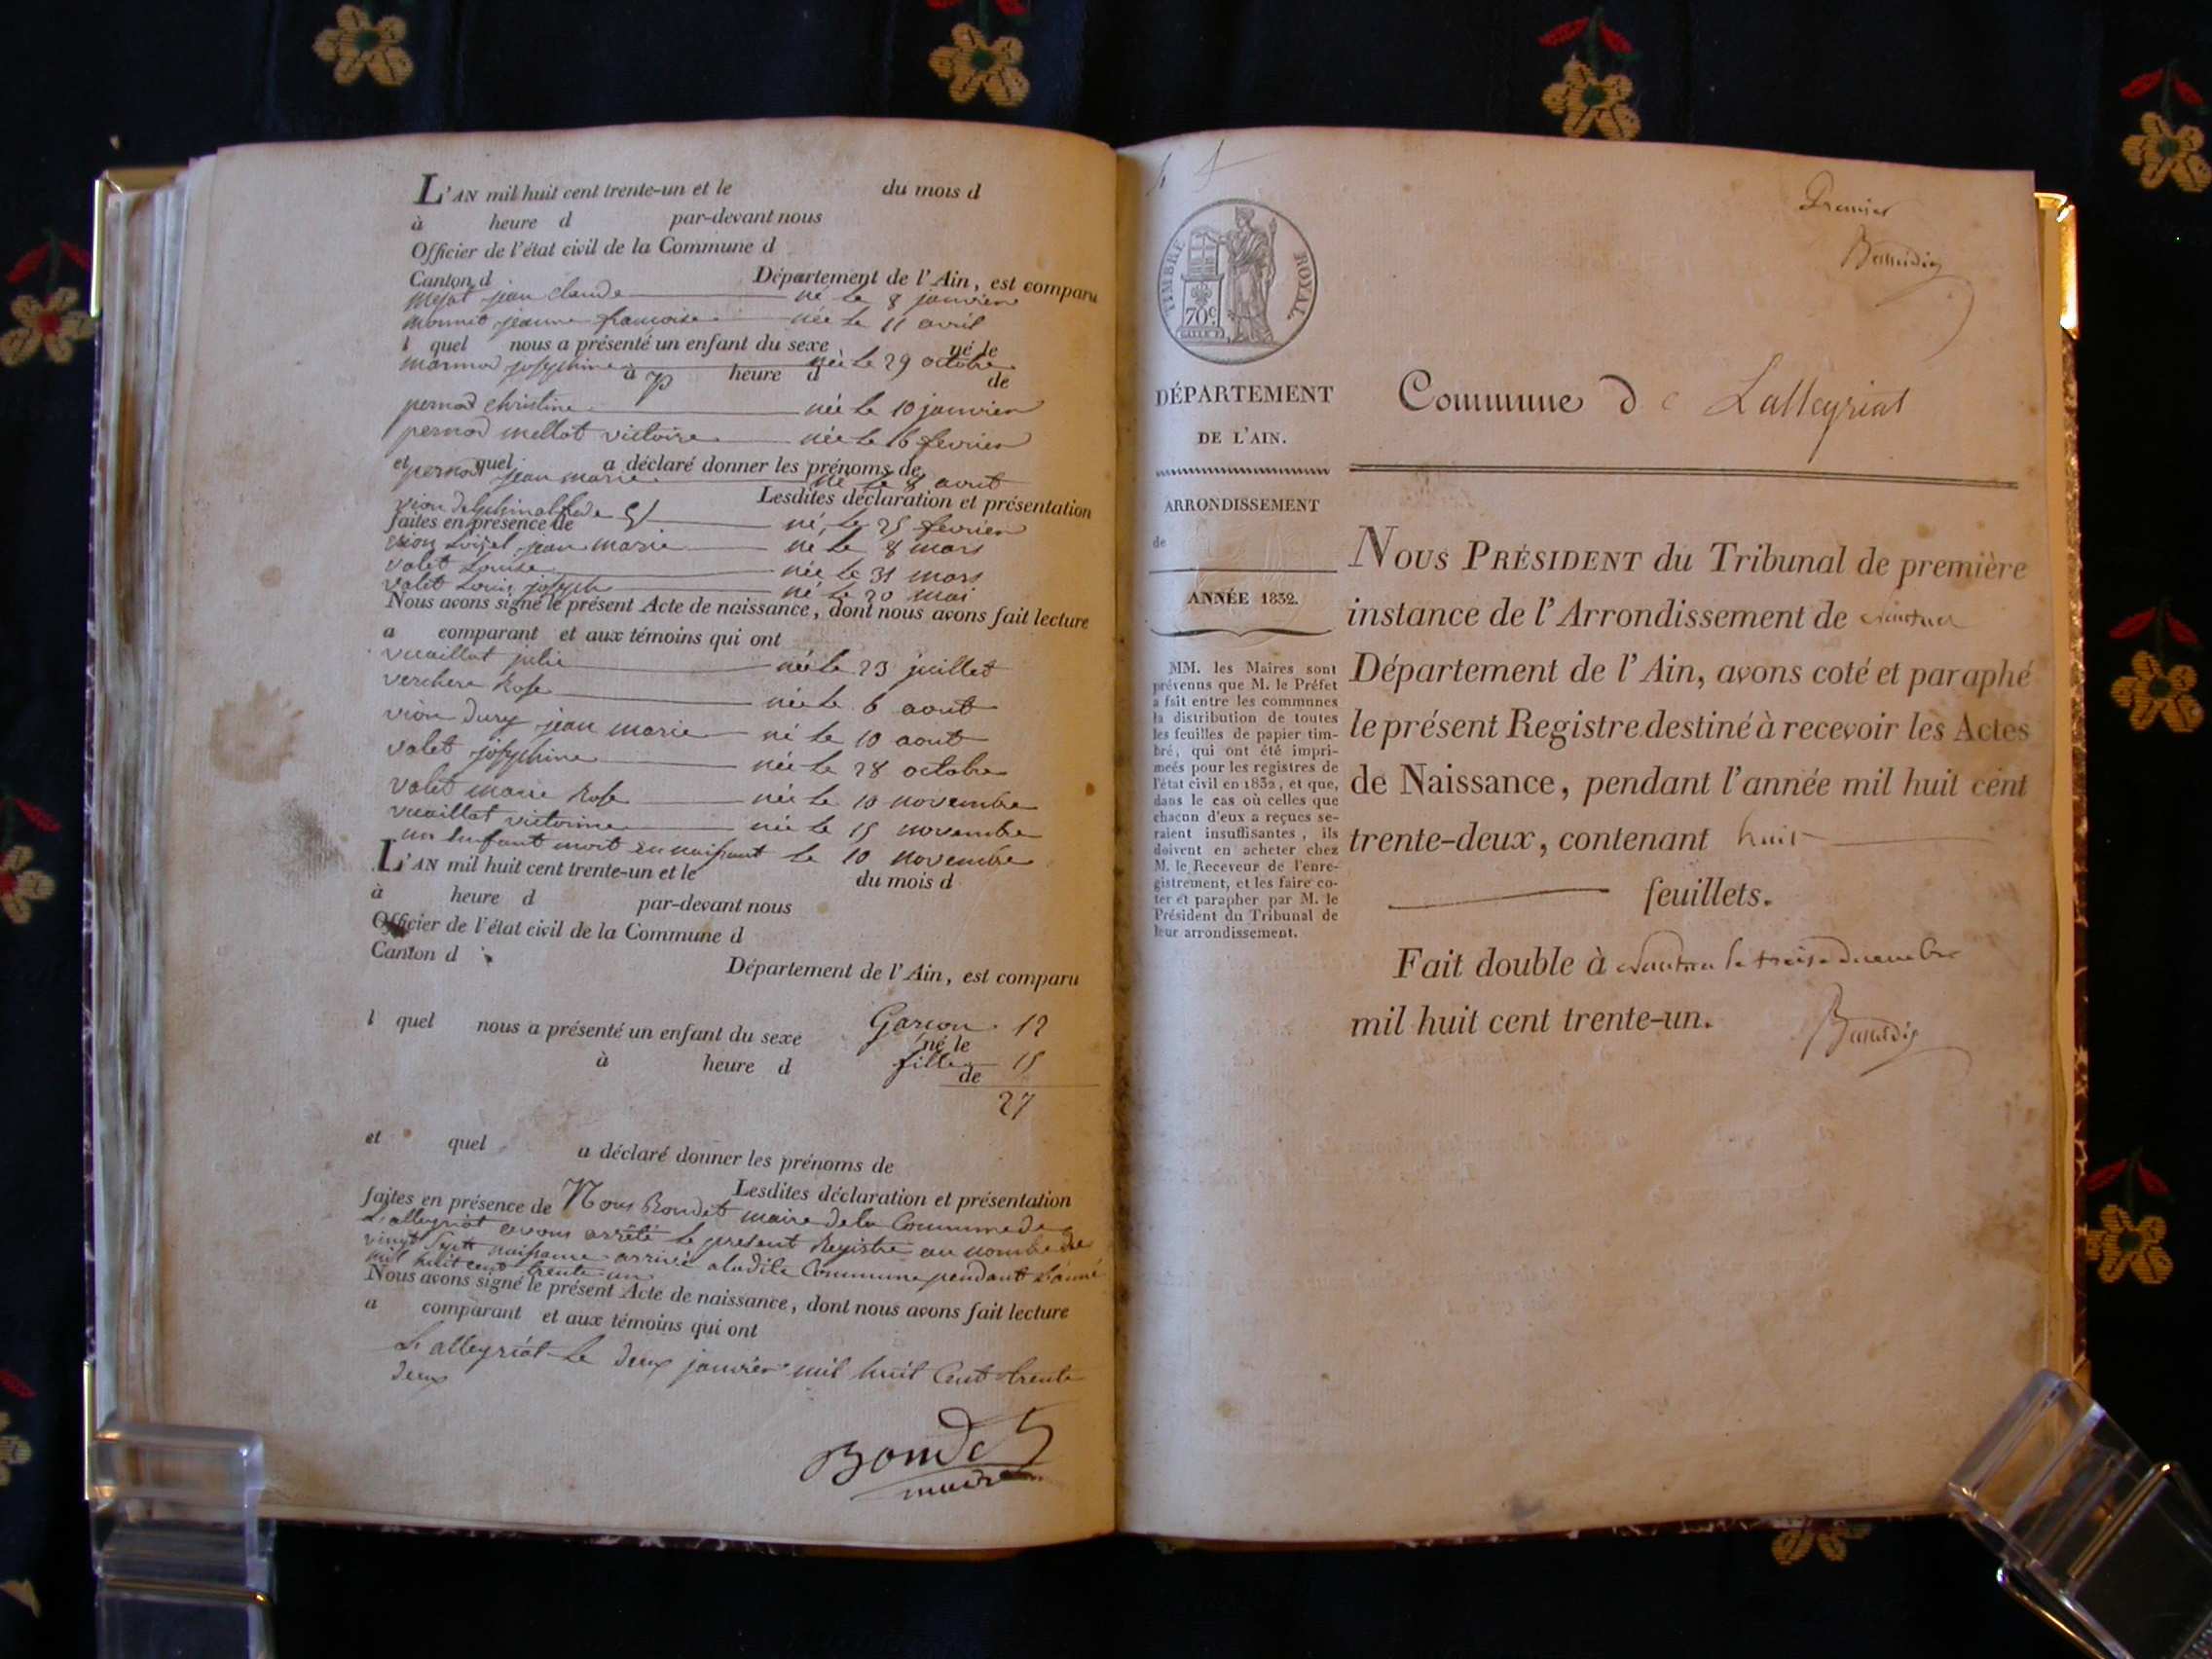 L'AN mil huit cent trente-un et le du mois d
à heure d par-devant nous
Officier de l'état civil de la Commune d
Canton d Département de l'Ain, est comparu
jean claude né le 8 janvier
jeanne francoise née le 11 avril
l quel nous a présenté un enfant du sexe né le
josephine née le 29 octobre
à heure d de
pernod christine née le 10 janvier
pernod mellot victoire née le 16 fevrier
et quel a déclaré donner les prénoms de
pernod jean marie né le 8 avril
Lesdites déclaration et présentation
vion né le 25 fevrier
faites en présence de
vion jean marie né le 8 mars
valet Louise née le 31 mars
valet Louis joseph né le 20 mai
Nous avons signé le présent Acte de naissance, dont nous avons fait lecture
a comparant et aux témoins qui ont
vuaillat julie née le 23 juillet
verchere Rose née le 6 aout
vion dury jean marie né le 10 aout
valet josephine née le 28 octobre
valet marie Rose née le 10 novembre
vuaillat victorine née le 15 novembre
un Enfant mort en naissant le 10 novembre
L'AN mil huit cent trente-un et le du mois d
à heure d par-devant nous
Officier de l'état civil de la Commune d
Canton d
Département de l'Ain, est comparu
l quel nous a présenté un enfant du sexe Garcon 12
né le
à heure d fille 15
de
27
et quel a déclaré donner les prénoms de
Lesdites déclaration et présentation
faites en présence de Nous Bondet maire de la Commune de
Lalleyriat avons arrêté le present Registre au nombre de
vingt Sept naissance arrivée a ladite Commune pendant L'année
mil huit cent trente un
Nous avons signé le présent Acte de naissance, dont nous avons fait lecture
a comparant et aux témoins qui ont
Lalleyriat le deux janvier mil huit Cent trente
deux
Bondet
maire
Premier
TIMBRE ROYAL
70c.
DÉPARTEMENT
DE L'AIN.
ARRONDISSEMENT
de
ANNÉE 1832.
MM. les Maires sont
prévenus que M. le Préfet
a fait entre les communes
la distribution de toutes
les feuilles de papier tim-
bré, qui ont été impri-
meés pour les registres de
l'état civil en 1832, et que,
dans le cas où celles que
chacun d'eux a reçues se-
raient insuffisantes, ils
doivent en acheter chez
M. le Receveur de l'enre-
gistrement, et les faire co-
ter et parapher par M. le
Président du Tribunal de
leur arrondissement.
Commune de Lalleyriat
NOUS PRÉSIDENT du Tribunal de première
instance de l'Arrondissement de Nantua
Département de l'Ain, avons coté et paraphé
le présent Registre destiné à recevoir les Actes
de Naissance, pendant l'année mil huit cent
trente-deux, contenant huit
feuillets.
Fait double à Nantua le treize decembre
mil huit cent trente-un.